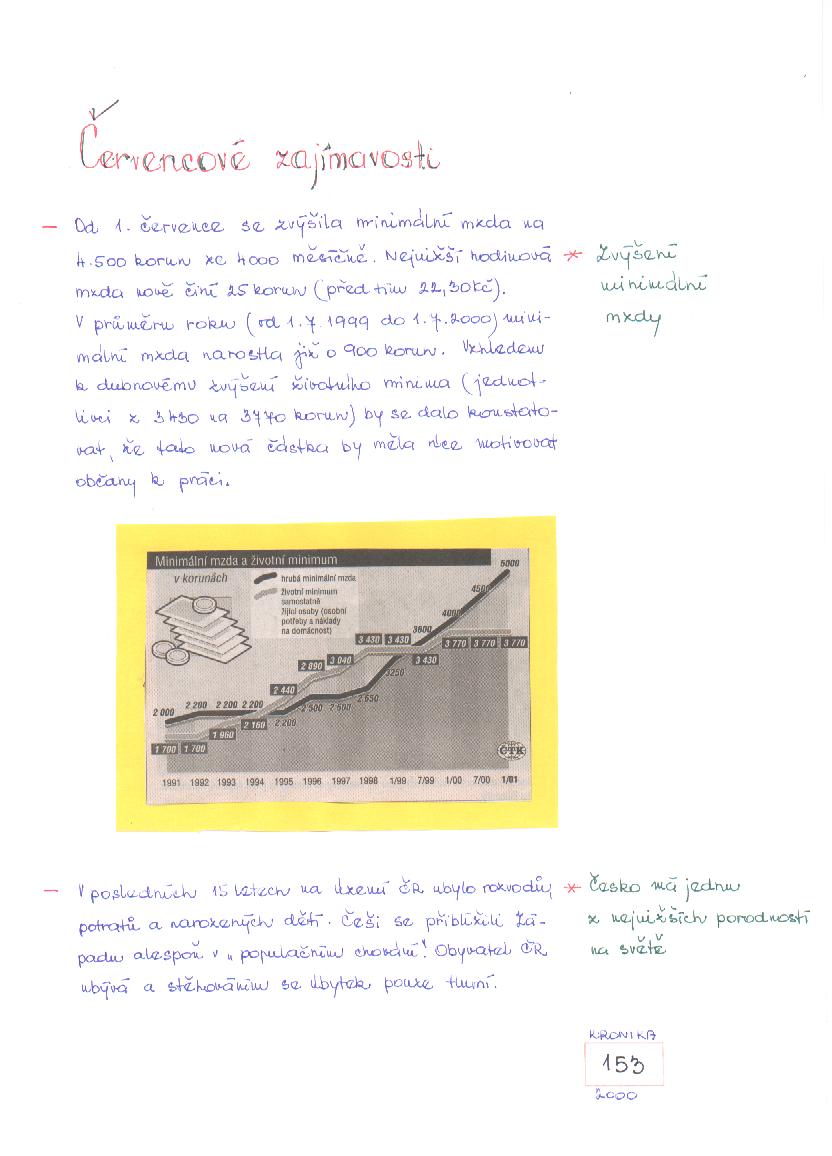 Červencové zajímavosti
- Od 1. července se zvýšila minimální mzda na
4.500 korun ze 4000 měsíčně. Nejnižší hodinová
mzda nově činí 25 korun (před tím 22,30Kč).
V průměru roku (od 1.7.1999 do 1.7.2000) mini-
mální mzda narostla již o 900 korun. Vzhledem
k dubnovému zvýšení životního minima (jednot-
livci z 3430 na 3770 korun) by se dalo konstato-
vat, že tato nová částka by měla více motivovat
občany k práci.
* Zvýšení
minimální
mzdy
Minimální mzda a životní minimum
v korunách
hrubá minimální mzda
životní minimum
samostatně
žijící osoby (osobní
potřeby a náklady
na domácnost)
5000
4500
4000
3600
3 430 3 430
3 770 3 770 3 770
3 430
3 040
2 890
3250
2 440
2 650
2 600
2 500
2 000 2 200 2 200 2 200
2 160 2 200
1 960
1 700 1 700
ČTK
1991 1992 1993 1994 1995 1996 1997 1998 1/99 7/99 1/00 7/00 1/01
- V posledních 15 letech na území ČR ubylo rozvodů,
potratů a narozených dětí. Češi se přiblížili Zá-
padu alespoň v „populačním chování". Obyvatel ČR
ubývá a stěhováním se úbytek pouze tlumí.
* Česko má jednu
z nejnižších porodností
na světě
KRONIKA
153
2000